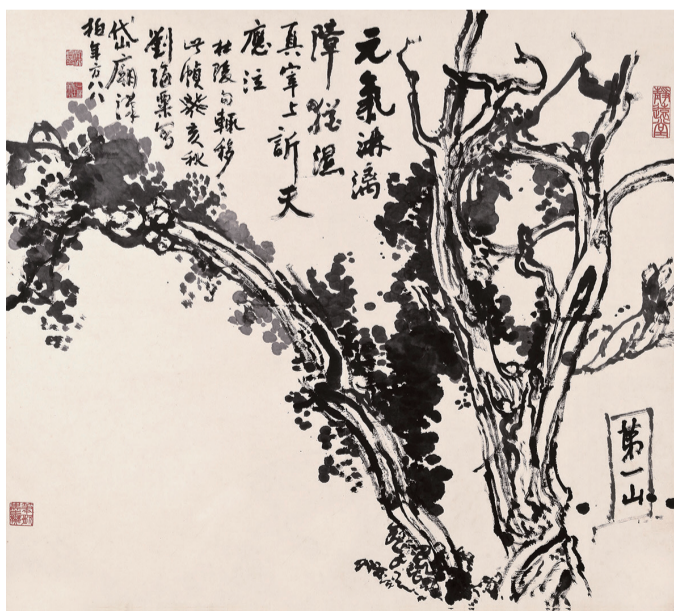 元氣淋漓
障猶濕
真宰上訴天
應泣
杜陵句輒移
此幀癸亥秋
劉海粟寫
岱廟漢
柏年方八八
第一山
靜遠堂